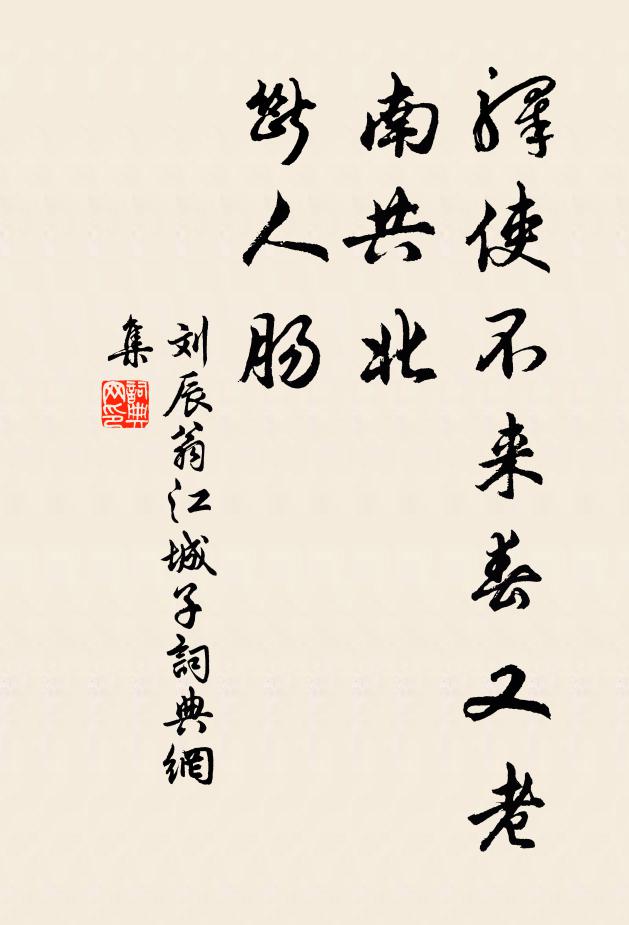 驛使不来春又老
南共北
斷人肠
刘辰翁江城子詞典網
集
詞典
网印